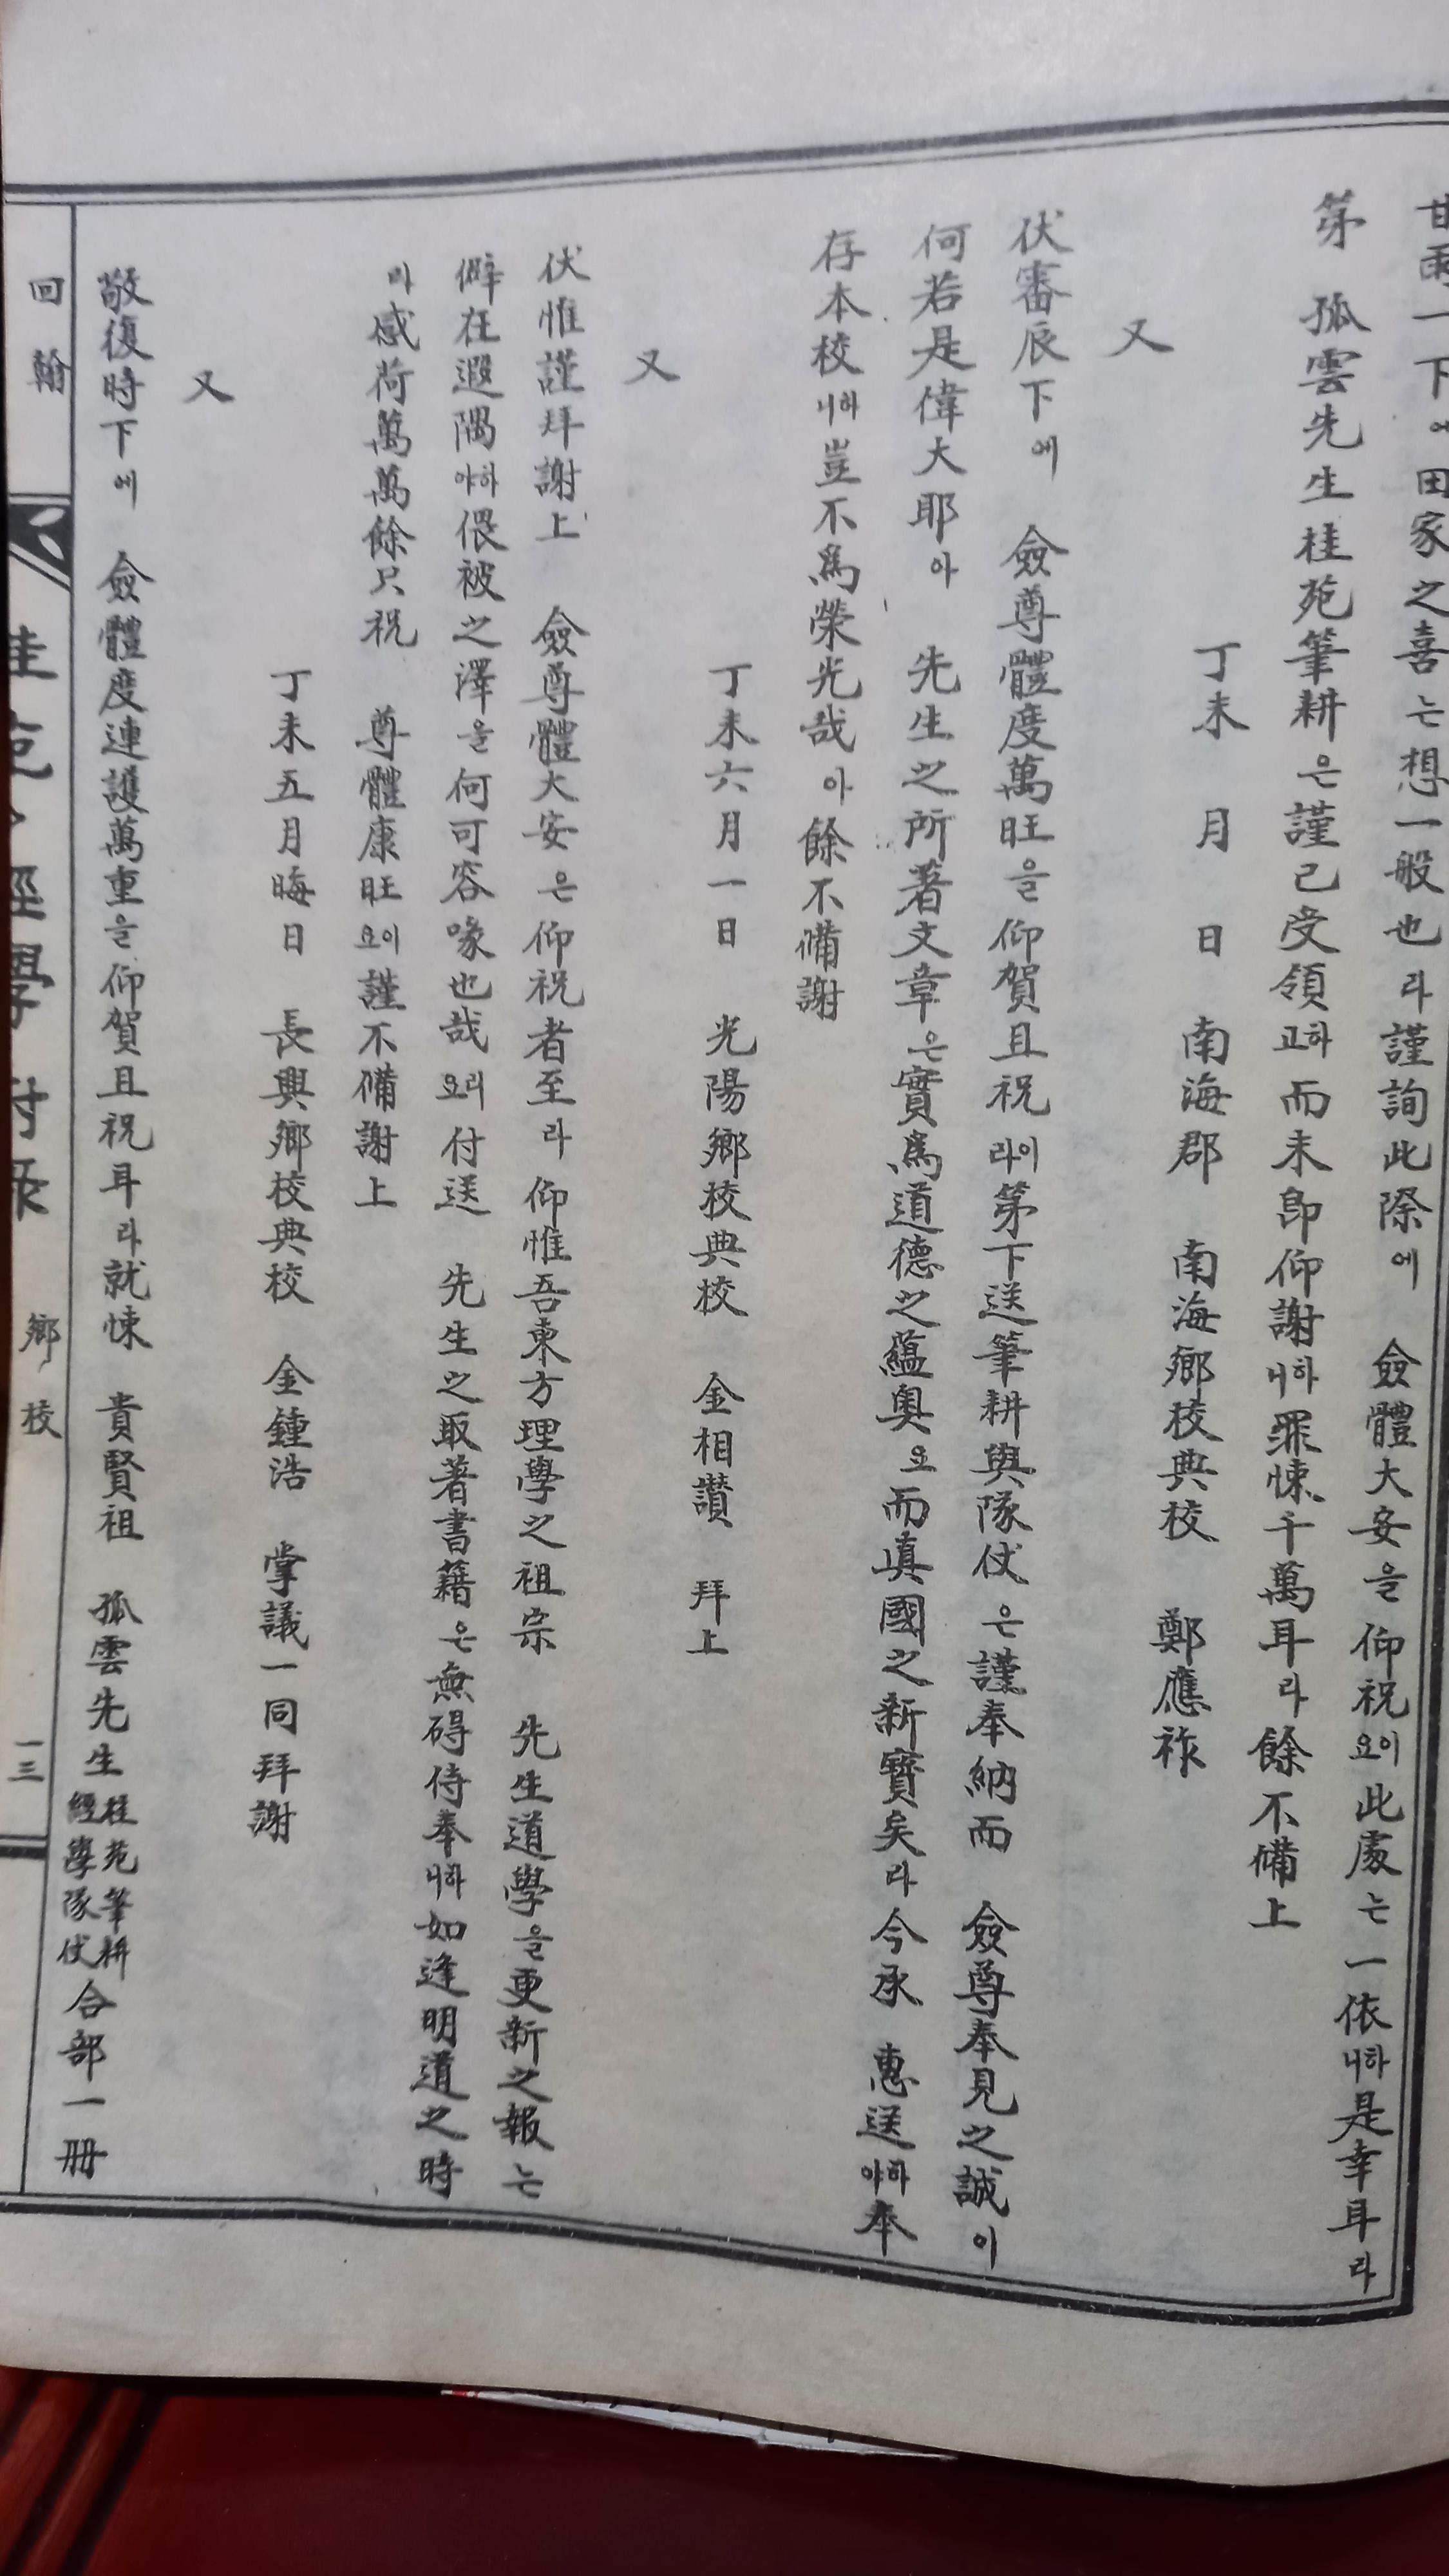 甘雨一下에田家之喜는想一般也라謹詢此際에 僉體大安을仰祝이요此處는一依하니是幸耳라
第 孤雲先生桂苑筆耕은謹已受領하고而未卽仰謝하니罪悚千萬耳라餘不備上
丁未 月 日 南海郡 南海鄉校典校 鄭應祚
又
伏審辰下에 僉尊體度萬旺을仰賀且祝이라第下送筆耕與隊仗은謹奉納而 僉尊奉見之誠이
何若是偉大耶아 先生之所著文章은實爲道德之蘊奧요而眞國之新寶矣라今承 惠送하야奉
存本校하니豈不爲榮光哉아餘不備謝
丁未六月一日 光陽鄉校典校 金相讚 拜上
又
伏惟謹拜謝上 僉尊體大安은仰祝者至라仰惟吾東方理學之祖宗 先生道學을更新之報는
僻在遐隅하야偎被之澤을何可容喙也哉리요付送 先生之取著書籍은無碍侍奉하니如逢明道之時
라感荷萬萬餘只祝 尊體康旺이요謹不備謝上
丁未五月晦日 長興鄉校典校 金鍾浩 掌議一同拜謝
又
敬復時下에 僉體度連護萬重을仰賀且祝耳라就悚 貴賢祖 孤雲先生桂苑筆耕經學隊仗合部一冊
回翰 鄉校 一三